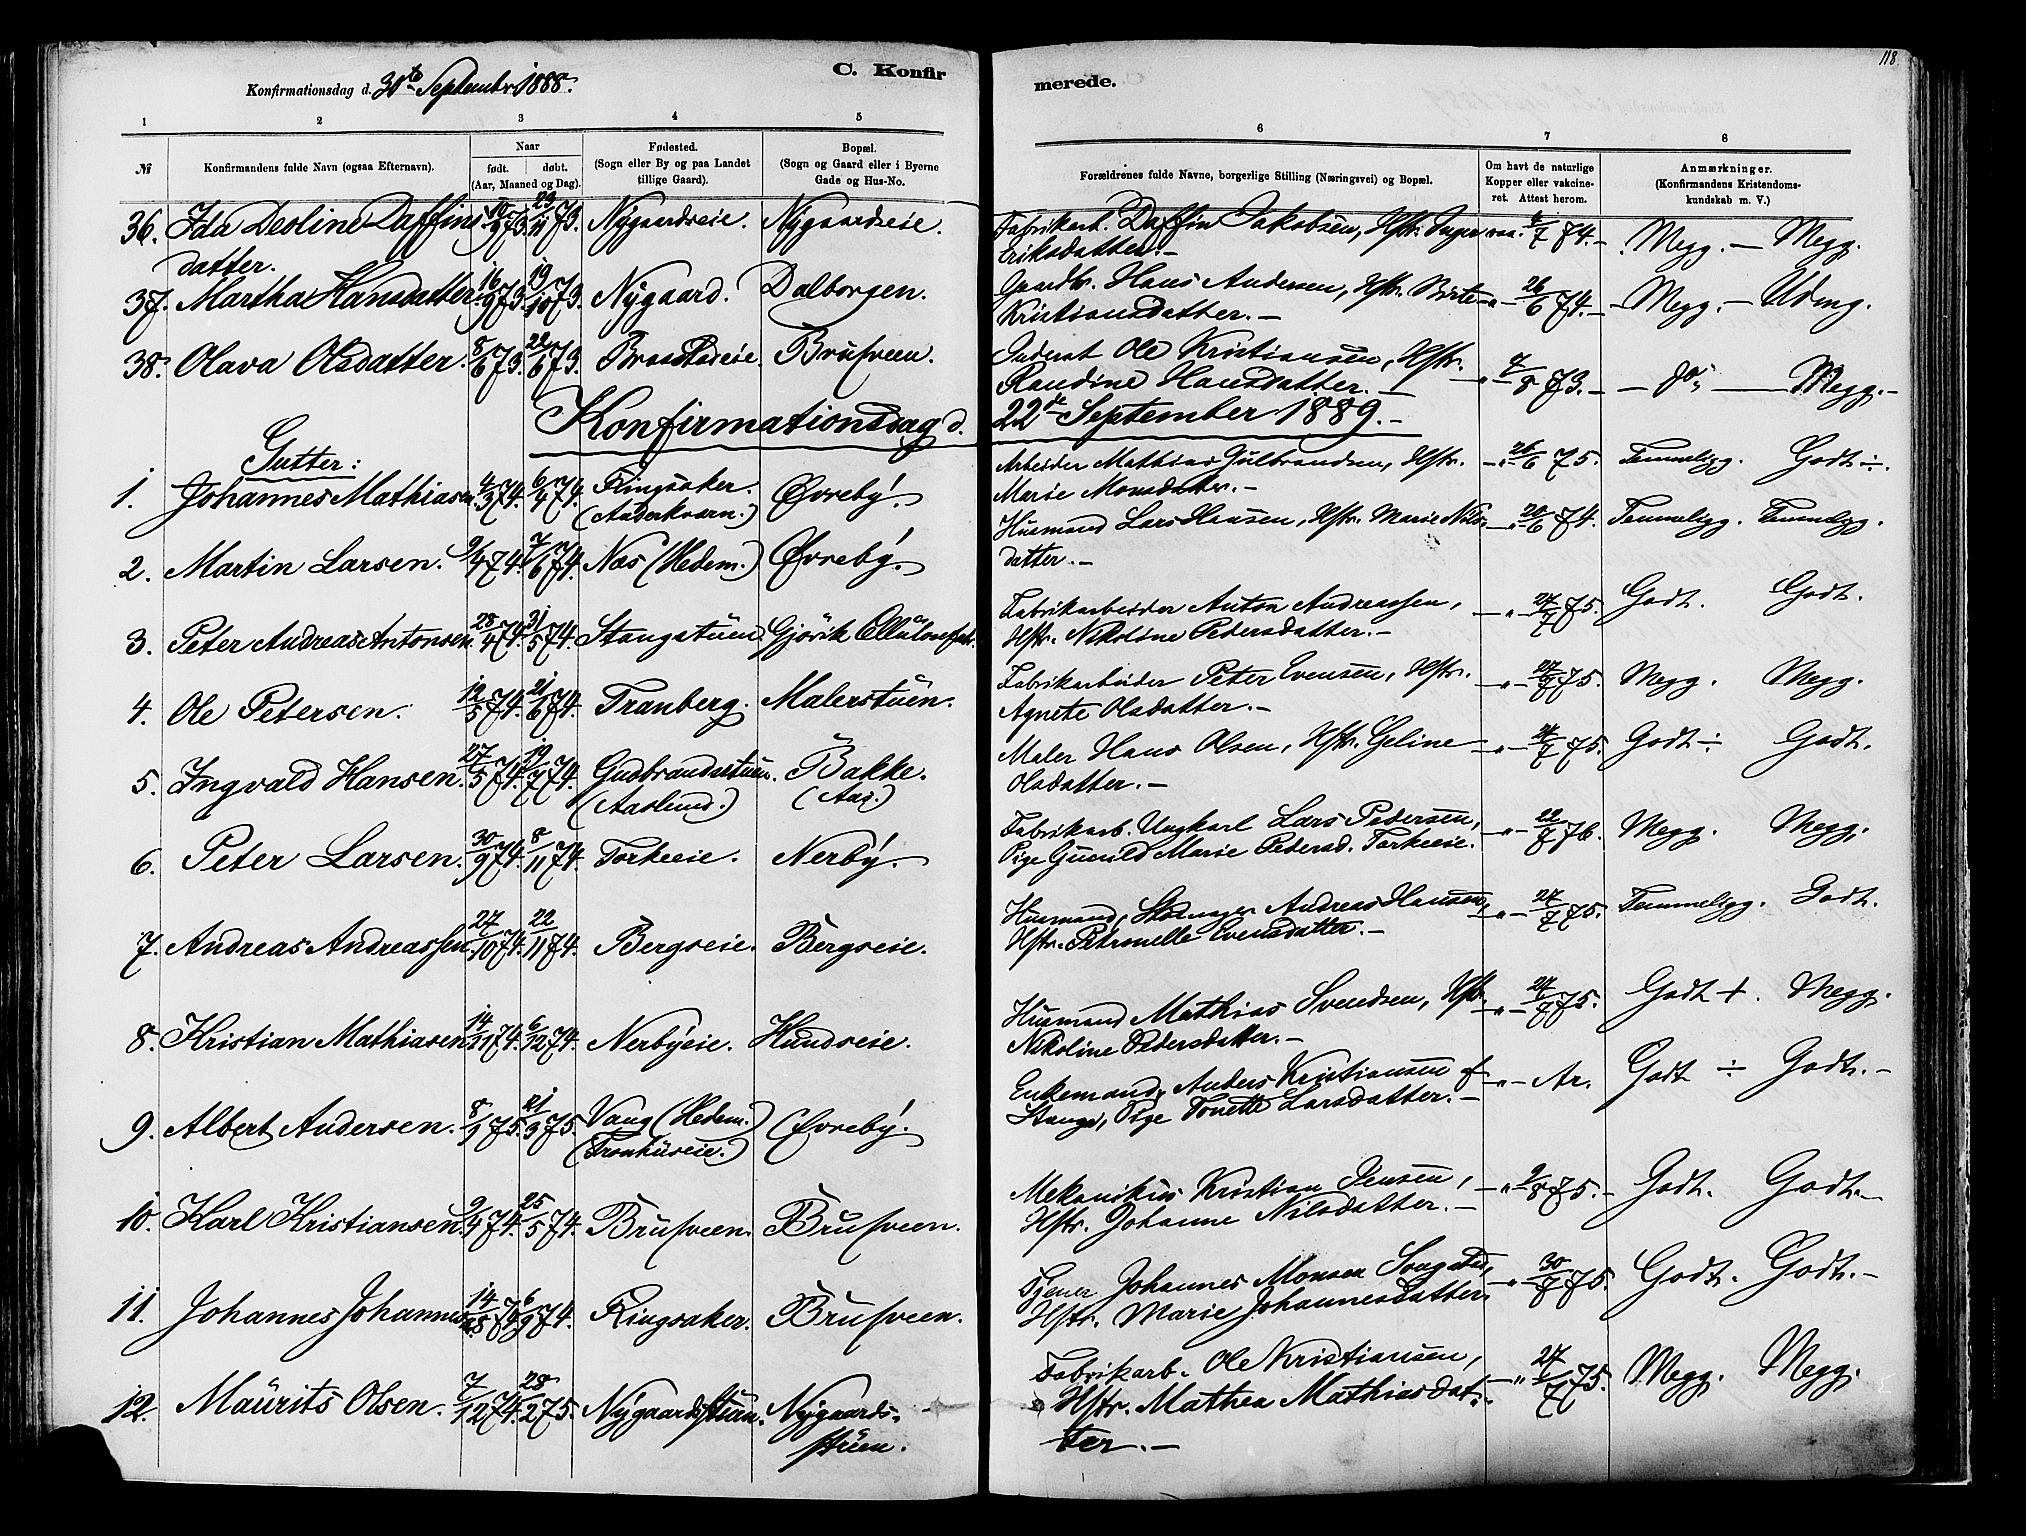 118
C. Konfirmerede.
Konfirmationsdag d. 30te September 1888.
1 2 3 4 5 6 7 8
№
Konfirmandens fulde Navn (ogsaa Efternavn).
Naar
født. døbt.
(Aar, Maaned og Dag).
Fødested.
(Sogn eller By og paa Landet
tillige Gaard).
Bopæl.
(Sogn og Gaard eller i Byerne
Gade og Hus-No.
Forældrenes fulde Navne, borgerlige Stilling (Næringsvei) og Bopæl.
Om havt de naturlige
Kopper eller vakcine-
ret. Attest herom.
Anmærkninger.
(Konfirmandens Kristendoms-
kundskab m. V.)
36. Ida Deoline Daffins 10/9 73. 23/11 73. Nygaardseie. Nygaardseie. Fabrikarb. Daffin Jakobsen, Hstr. Inger vac. 4/7 74. Megg. — Megg.
datter. Eriksdatter. —
37. Martha Hansdatter. 16/9 73. 19/10 73. Nygaard. Dalborgen. Gaardbr. Hans Andersen, Hstr. Birte —"— 26/6 74. — Megg. — Udmg.
Kristiansdatter. —
38. Olava Olsdatter. 8/6 73. 22/6 73. Braastadeie. Brusveen. Inderst Ole Kristiansen, Hstr.
Randine Hansdatter. —"— 7/8 73. — do — Megg. —
Konfirmationsdag d. 22de September 1889. —
Gutter:
1. Johannes Mathiasen. 4/3 74. 6/4 74. Ringsaker. Øvreby. Arbeider Mathias Gulbrandsen, Hstr. —"— 26/6 75. Temmeligg. Godt ÷.
(Anderkværn.) Marie Monsdatter. —
2. Martin Larsen. 9/4 74. 7/6 74. Nes (Hedem.) Øvreby. Husmand Lars Hansen, Hstr. Marie Nils- —"— 20/6 74. Temmeligg. Temmeligg.
datter. —
3. Peter Andreas Antonsen. 28/4 74. 31/5 74. Stangstuen. Gjövik Cellulosefabr. Fabrikarbeider Anton Andreassen, —"— 27/7 75. Godt. Godt.
Hstr. Nikoline Pedersdatter. —
4. Ole Petersen. 12/5 74. 21/6 74. Tranberg. Malerstuen. Fabrikarbeider Peter Evensen, Hstr. —"— 27/7 75. Megg. Megg.
Agnete Olsdatter. —
5. Ingvald Hansen. 27/5 74. 19/7 74. Gudbrandsstuen. Bakke. Maler Hans Olsen, Hstr. Geline —"— 27/7 75. Godt ÷ Godt.
(Aaslund.) (Aas.) Olsdatter. —
6. Peter Larsen. 30/9 74. 8/11 74. Torkeeie. Nerby. Fabrikarb. Ungkarl Lars Pedersen, —"— 22/7 76. Megg. Megg.
Pige Gunild Marie Pedersd. Torkeeie.
7. Andreas Andreassen 27/10 74. 22/11 74. Bergseie. Bergseie. Husmand, Skomager Andreas Hansen, —"— 27/7 75. Temmeligg. Godt.
Hstr. Petronelle Evensdatter. —
8. Kristian Mathiasen 14/31 74. 6/12 74. Nerbyeie. Hundseie. Husmand Mathias Svendsen, Hstr. —"— 27/7 75. Godt +. Megg.
Nikoline Pedersdatter. —
9. Albert Andersen. 8/1 75. 21/3 75. Vang (Hedem.) Øvreby. Enkemand, Anders Kristiansen af —"— Ar. Godt ÷ Godt. —
(Tronhuseie.) Stange, Pige Tonette Larsdatter. —
10. Karl Kristiansen. 9/4 74. 25/5 74. Brusveen. Brusveen. Mekanikus Kristian Jensen, —"— 9/8 75. — Godt. Godt. —
Hstr. Johanne Nilsdatter. —
11. Johannes Johannesen 14/8 74. 6/9 74. Ringsaker. Brusveen. Tjener Johannes Monsen —"— 30/7 75. Godt. Godt. —
Hstr. Marie Johannesdatter.
12. Maurits Olsen. 7/12 74. 28/2 75. Nygaardsstuen. Nygaards- Fabrikarb. Ole Kristiansen, —"— 27/7 75. Megg. Megg.
stuen. Hstr. Mathea Mathiasdat-
ter. —